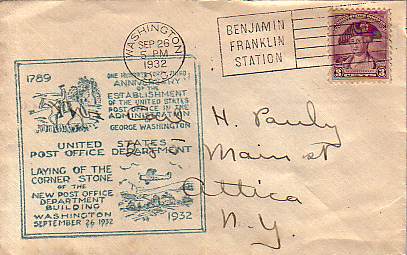 WASHINGTON
SEP 26
5 PM
1932
BENJAMIN
FRANKLIN
STATION
3 3
1789
ONE HUNDRED FORTY THIRD
ANNIVERSARY
OF THE
ESTABLISHMENT
OF THE UNITED STATES
POST OFFICE IN THE
ADMINISTRATION
OF
GEORGE WASHINGTON
UNITED STATES
POST OFFICE DEPARTMENT
LAYING OF THE
CORNER STONE
OF THE
NEW POST OFFICE
DEPARTMENT
BUILDING
WASHINGTON
SEPTEMBER 26 1932
1932
H. Pauly
Main st
Attica
N.Y.